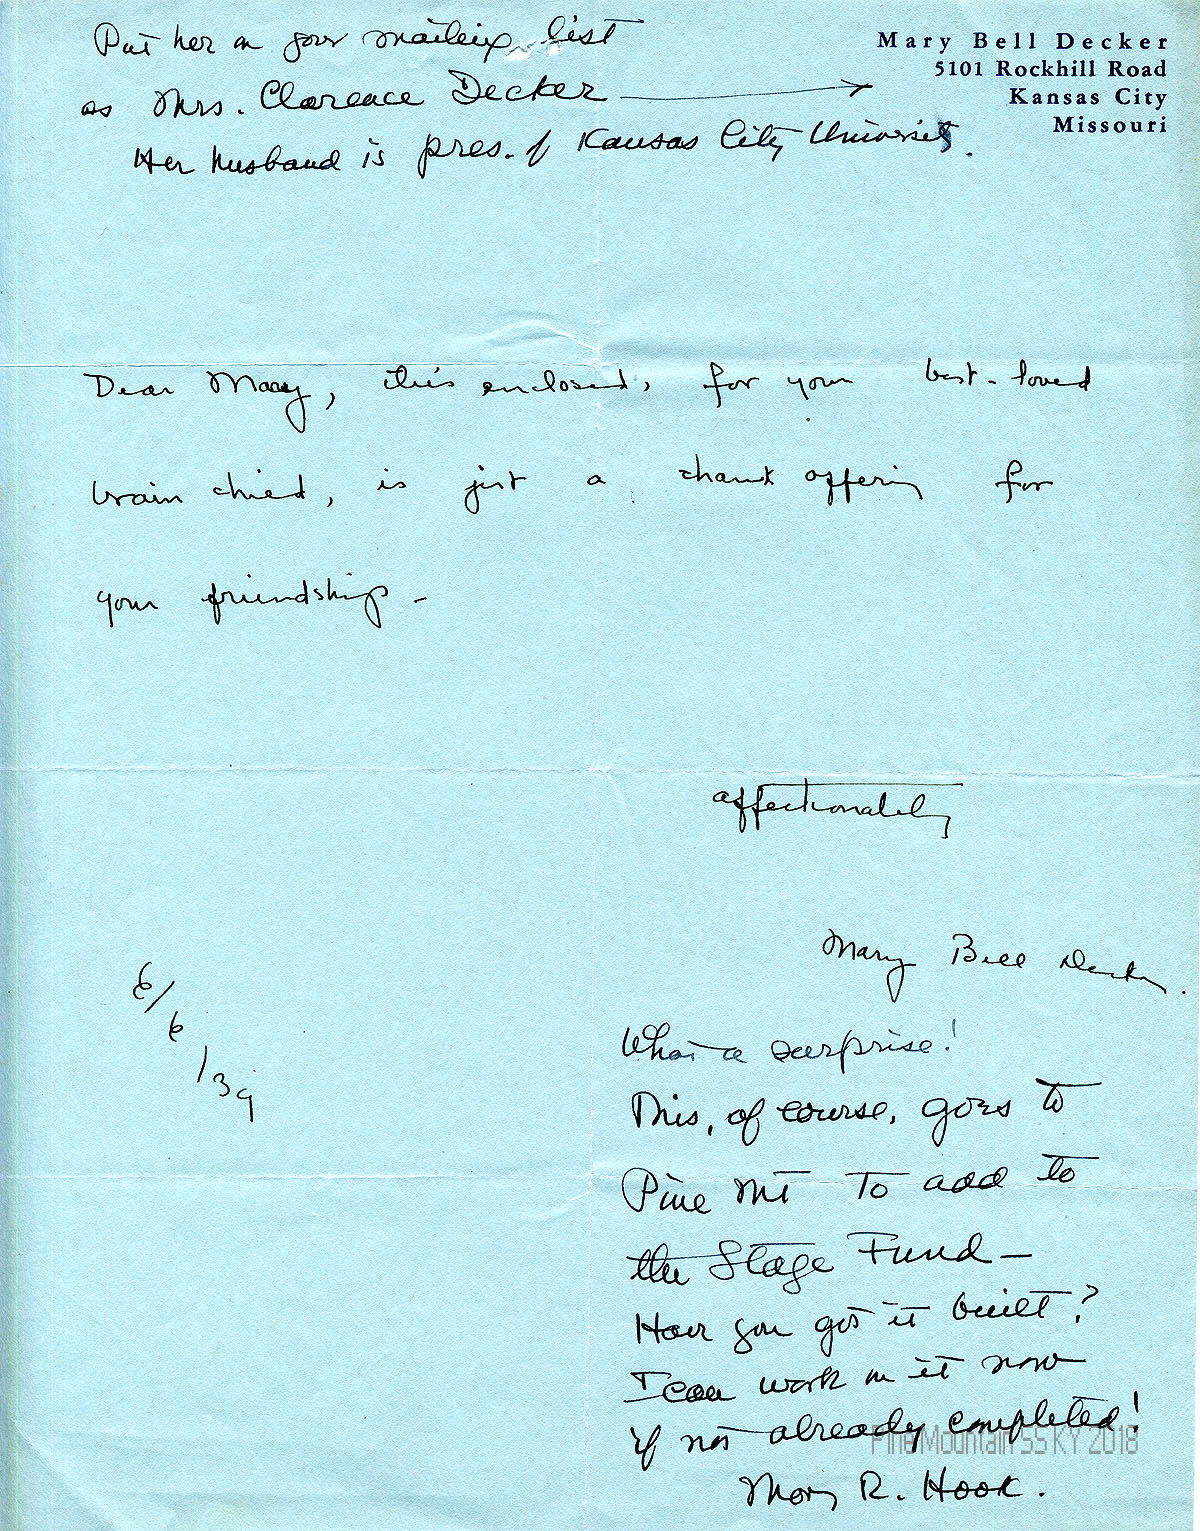 Put her on your mailing list
as Mrs. Clarence Decker
Her husband is pres. of Kansas City University.
Mary Bell Decker
5101 Rockhill Road
Kansas City
Missouri
Dear Mary, this enclosed, for your best-loved
brain child, is just a thank offering for
your friendship -
affectionately
Mary Bell Decker.
6/6/39
What a surprise!
This, of course, goes to
Pine Mt to add to
the Stage Fund —
Have you got it built?
I can work on it now
if not already completed!
Pine Mountain SS KY 2018
Mary R. Hook.